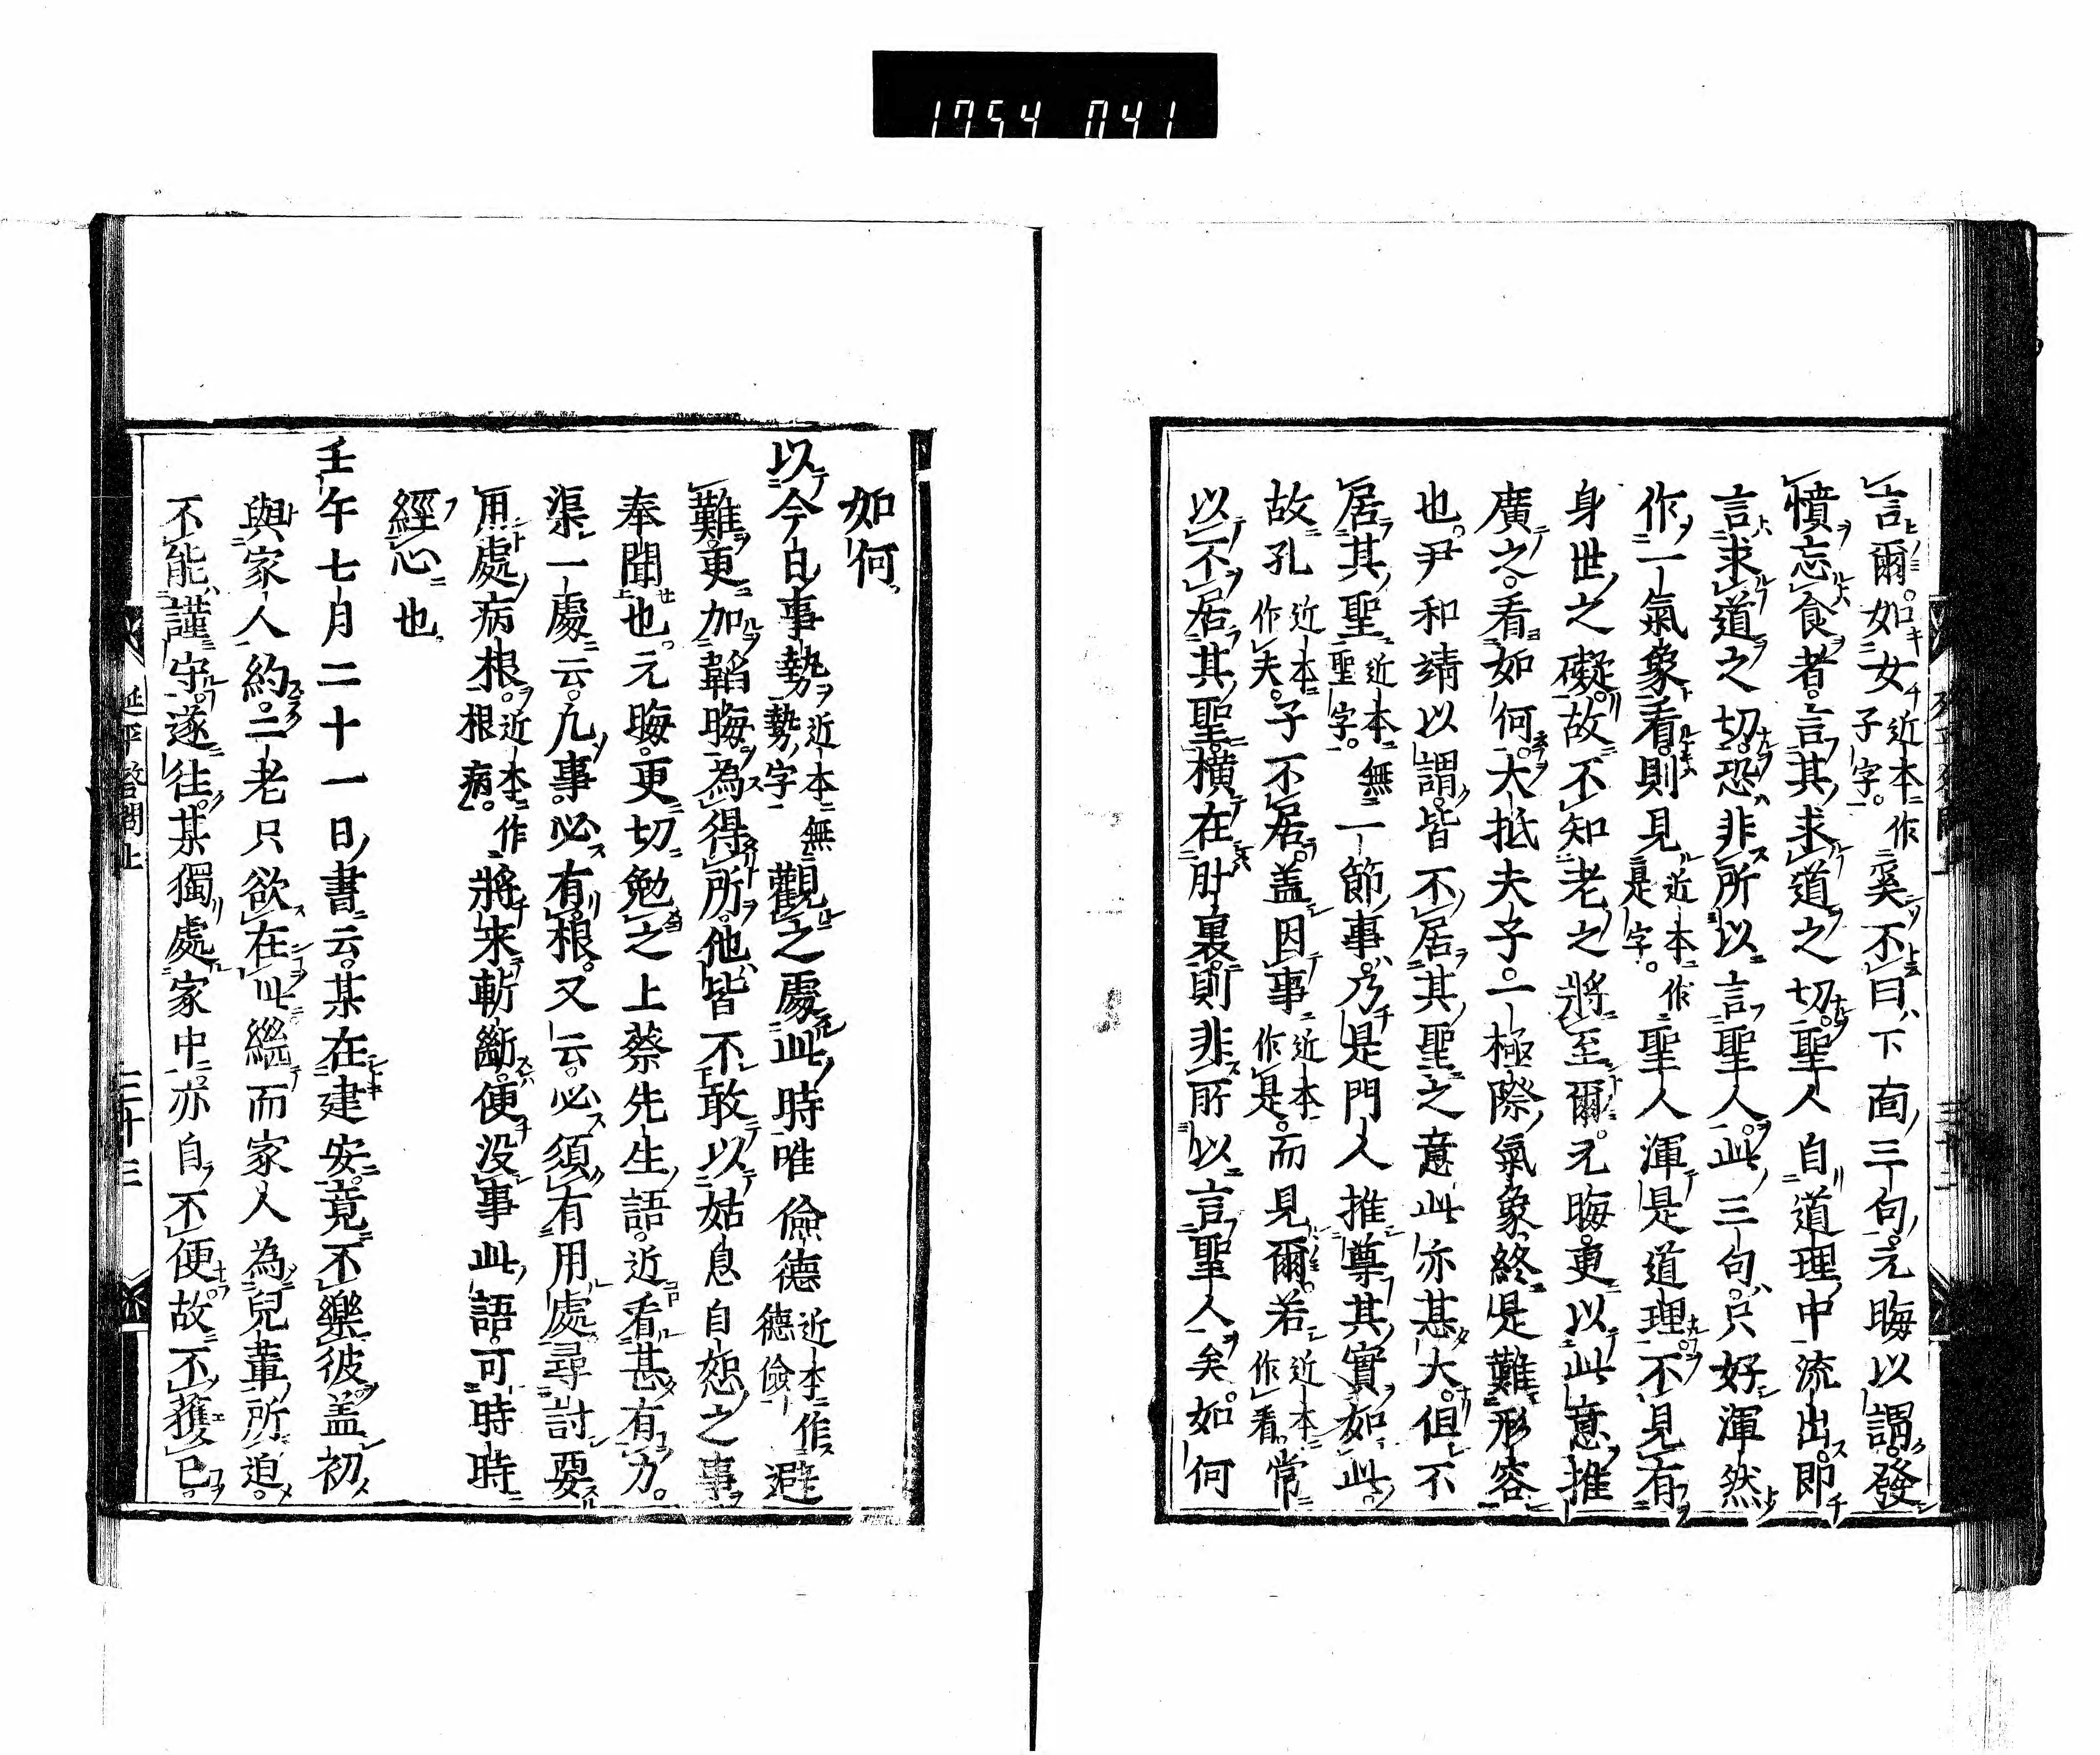 1754 041
言爾。如女近本作子字。奚不曰下面三句。元晦以謂。發
憤忘食者。言其求道之切。聖人自道理中流出。即
言求道之切。恐非所以言聖人。此三句。只好渾然
作一氣象看。則見近本作是字。聖人渾是道理。不見有
身世之礙。故不知老之將至爾。元晦更以此意推
廣之。看如何。大抵夫子。一極際氣象。終是難形容
也。尹和靖以謂。皆不居其聖之意。此亦甚大。但不
居其聖近本無聖字。一節事。乃是門人推尊其實如此。
故孔近本作夫。子不居。盖因事近本作是。而見爾。若近本作看。常
以不居其聖。橫在肚裏。則非所以言聖人矣。如何
如何
以今日事勢近本無勢字觀之處此時唯儉德近本作德儉避
難。更加韜晦。為得所。他皆不敢以姑息自恕之事
奉聞也。元晦更切勉之。上蔡先生語。近看甚有力。
渠一處云。凡事。必有根。又云。必須有用處尋討要
用處病根。近本作根病。將來斬斷。便沒事此語。可時時
經心也
壬午七月二十一日書云。某在建安。竟不樂彼。盖初
與家人約。二老只欲在此。繼而家人為兒輩所迫。
不能謹守。遂往。某獨處家中。亦自不便故不獲已。
延平答問上
二十三